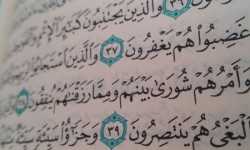 ۝٣٦ وَالَّذِينَ يَجْتَنِبُونَ كَبَائِرَ الْإِثْمِ
غَضِبُوا هُمْ يَغْفِرُونَ ۝٣٧ وَالَّذِينَ اسْتَجَابُوا
وَأَمْرُهُمْ شُورَىٰ بَيْنَهُمْ وَمِمَّا رَزَقْنَاهُمْ يُنْفِقُونَ
الْبَغْيُ هُمْ يَنْتَصِرُونَ ۝٣٩ وَجَزَاءُ سَيِّئَةٍ سَيِّئَةٌ